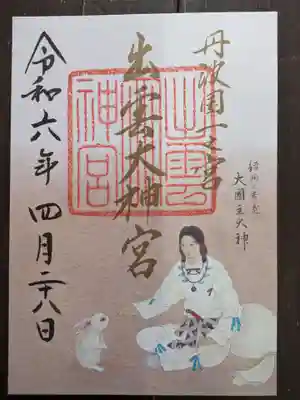 丹波国一之宮
出雲大神宮
出雲
神宮
大國主大神
令和六年四月二十八日